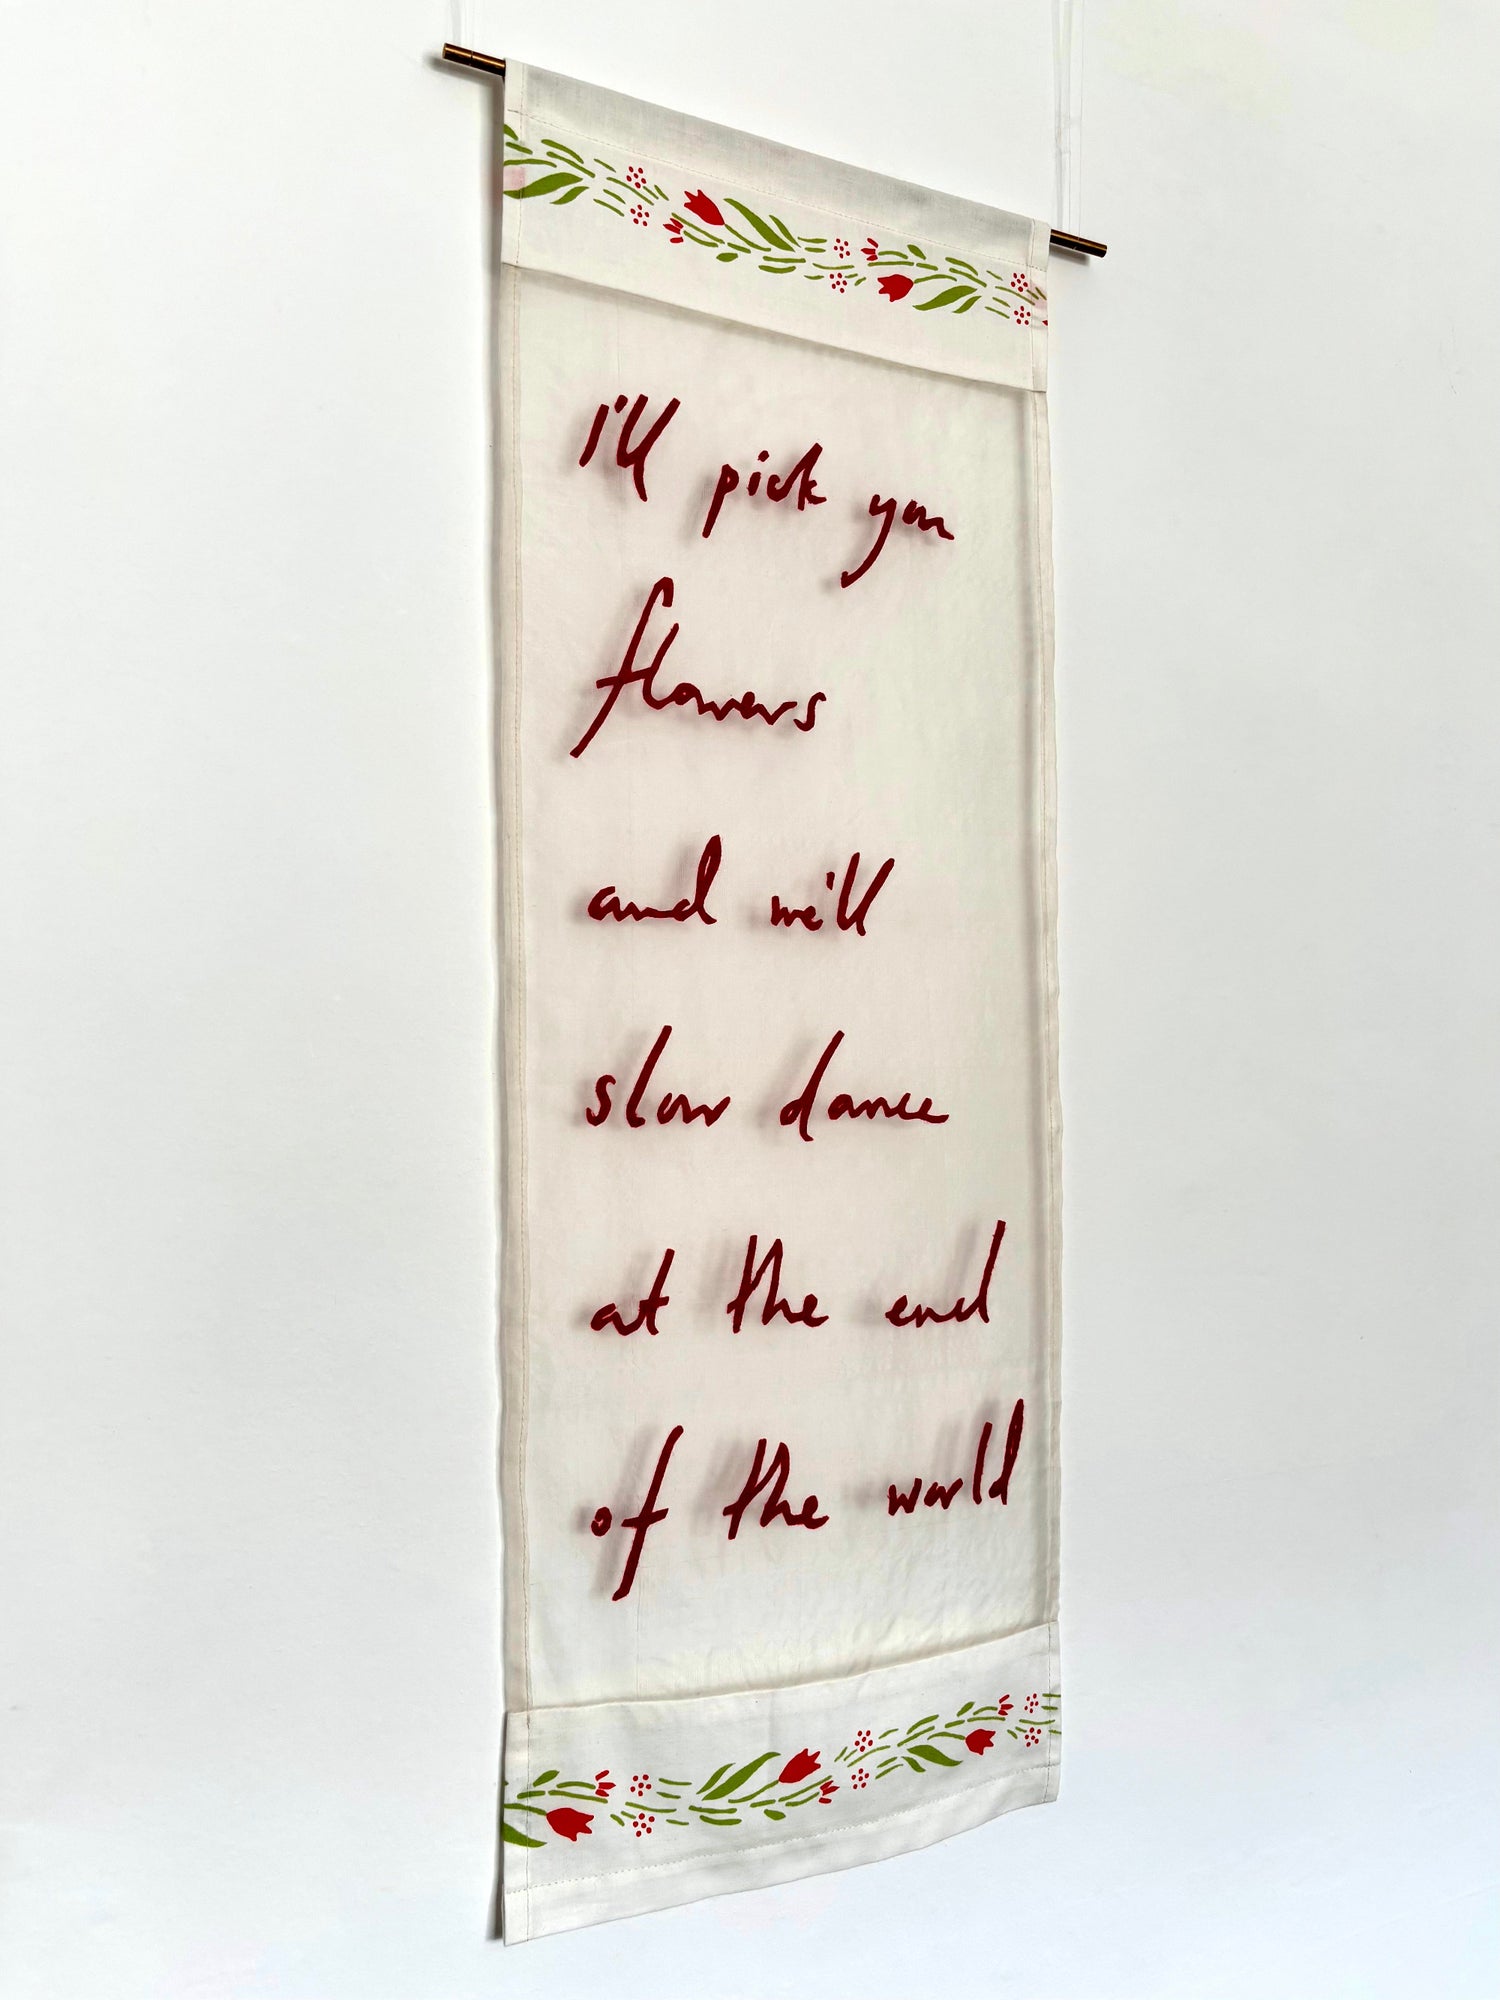 I'll pick you
flowers
and we'll
slow dance
at the end
of the world